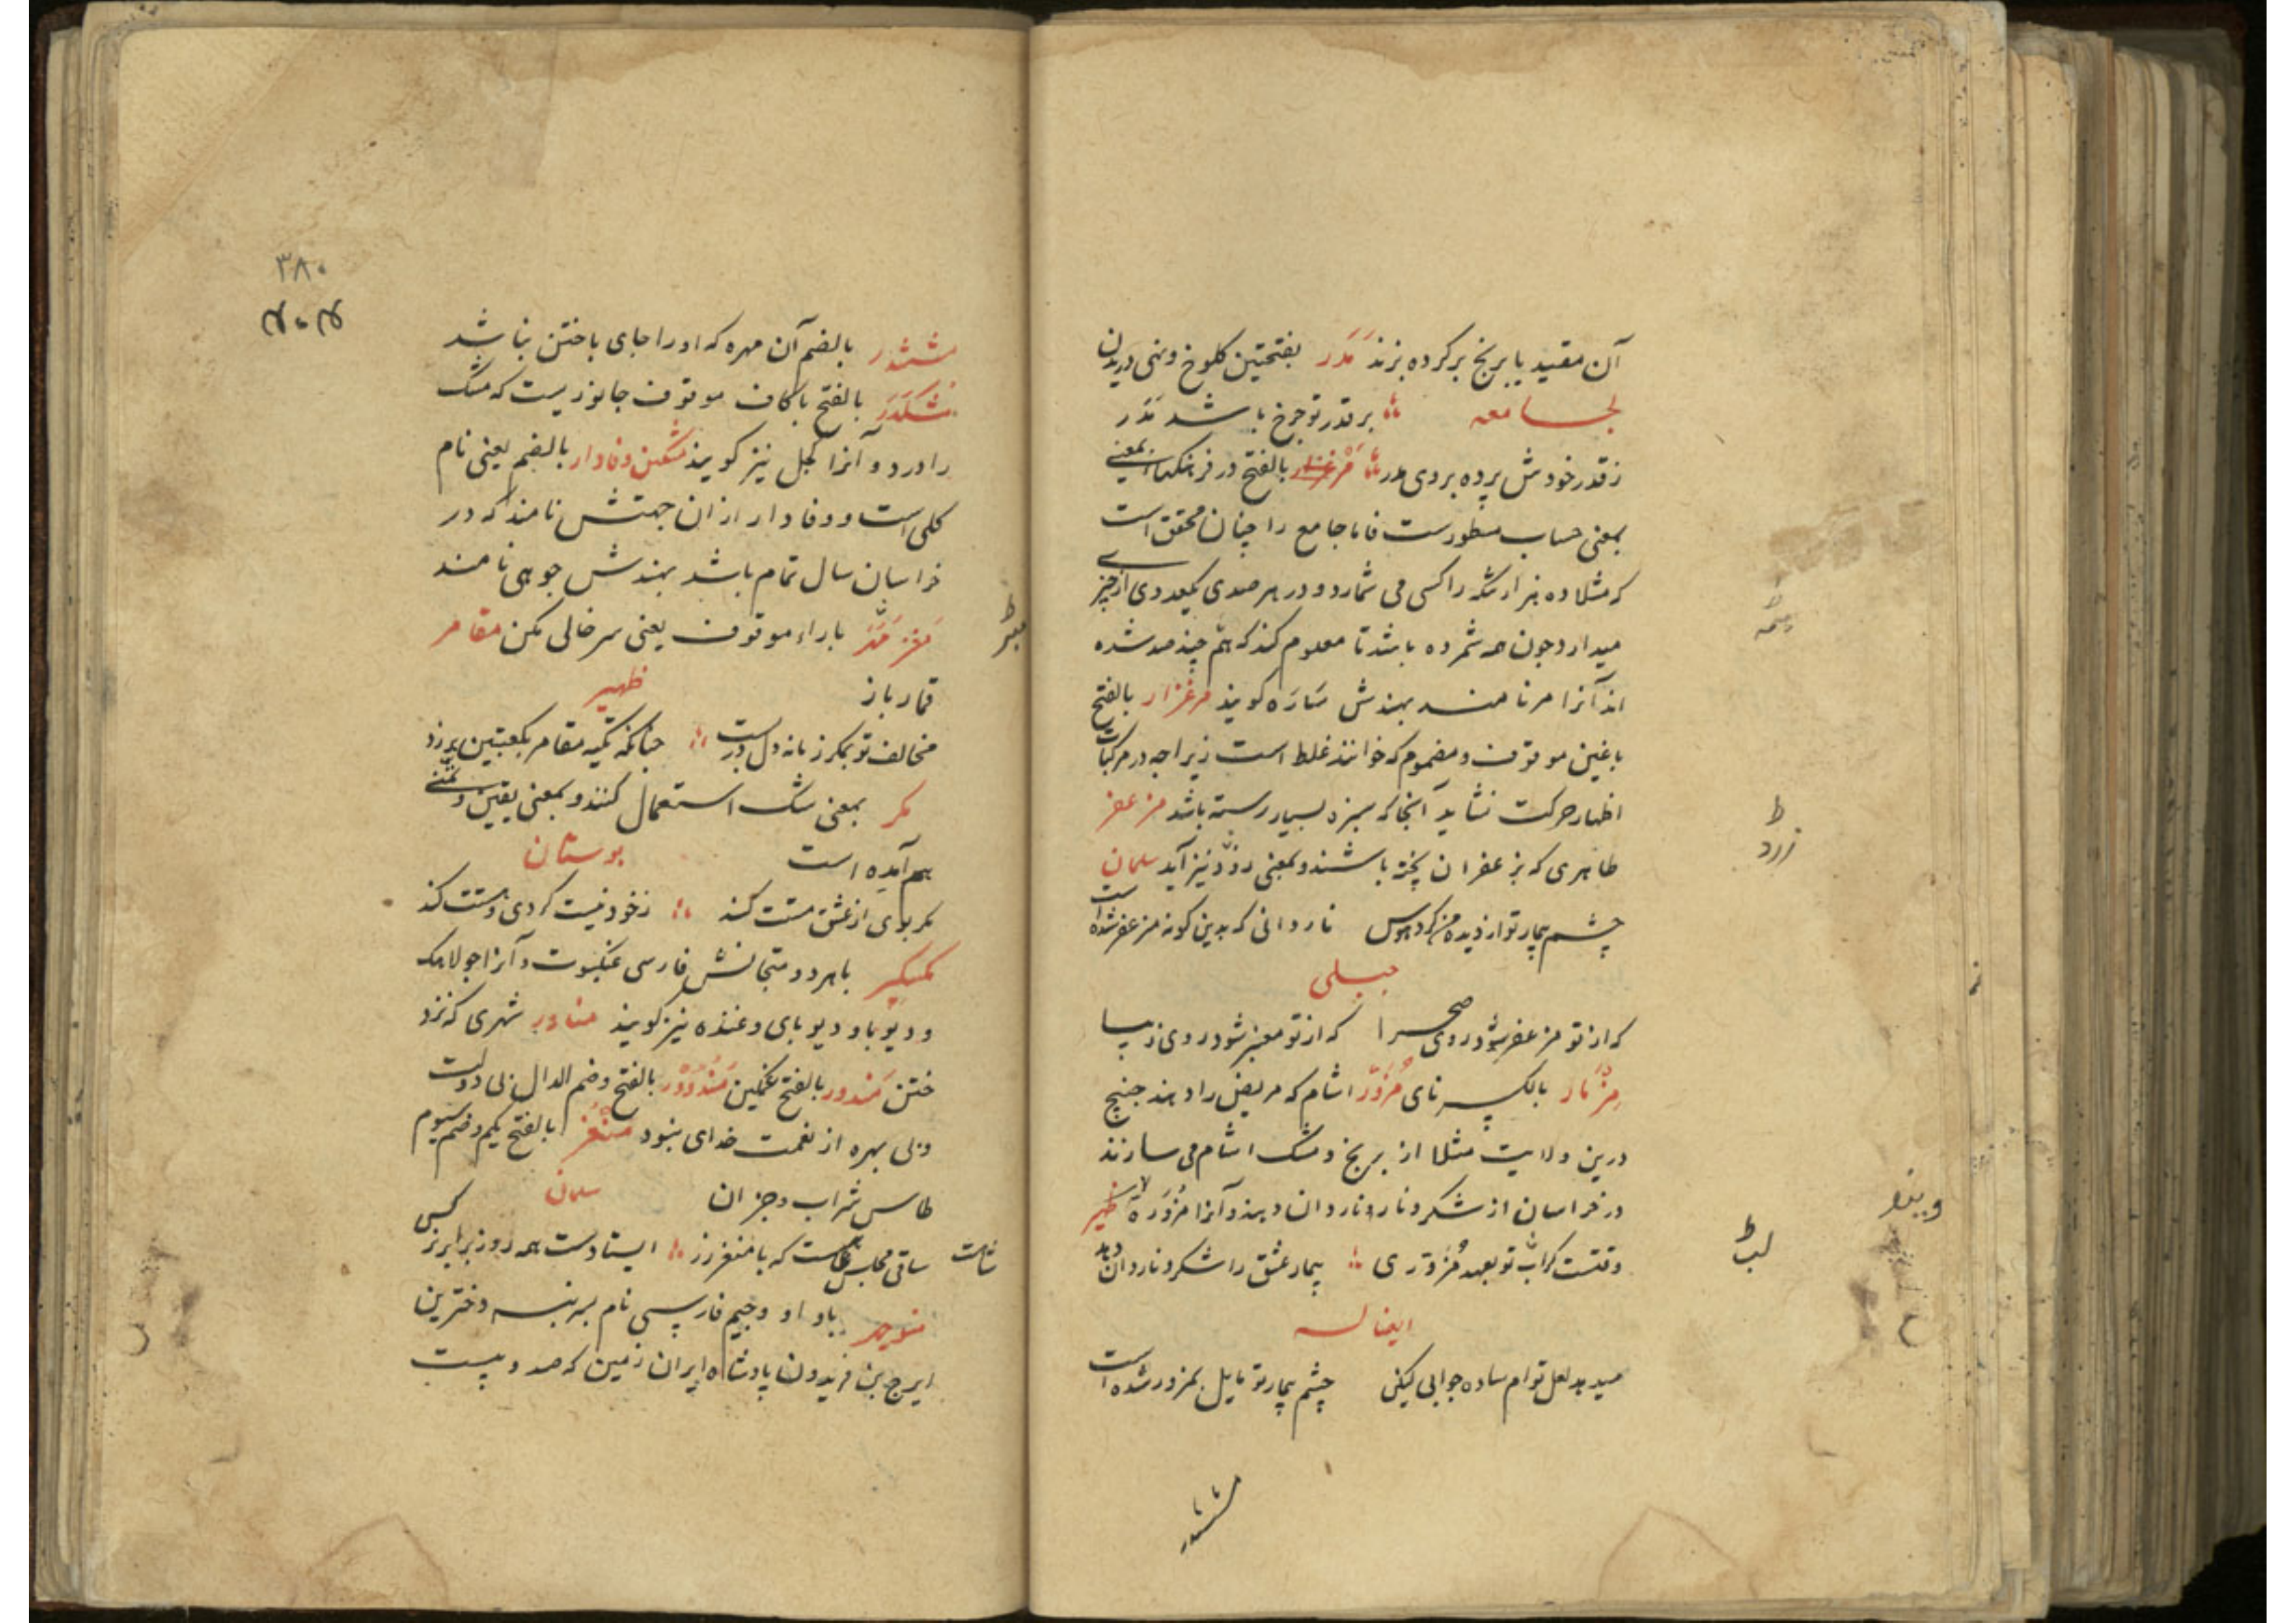 آن مقید یا برنج بر کرده بزند مَدَر بفتحتین کلوخ و نهی دریدن
لجامعه بر قدر تو چرخ باشد مَدَر
ز قدر خودش پرده بر وی مدر مَرغزار بالفتح در فرهنگها بمعنی
بمعنی حساب مسطورست فاما جامع را چنان محقق است
که مثلا ده هزار تنکه را کسی می شمارد و در هر صدی یکعددی از چیزے
میدارد چون همه شمرده باشد تا معلوم کند که هم چند صد شده
اند آنرا مر نامند بهندش سَارَه کویند مرغزار بالفتح
با غین موقوف و مضموم که خوانند غلط است زیراچه در مرکبات
اظهار حرکت نشاید آنجا که سبزه بسیار رسته باشد مزعفر
طاهری که بزعفران پخته باشند و بمعنی زرد نیز آید سلمان
چشم بیمار تو از دیده من کرد هوس نار دانی که بدین کونه مزعفر شده است
جبلی
که از تو مزعفر شود روی صحرا که از تو معنبر شود روی زیبا
مِزْمَار بالکسر نای مُزَوَّر اشام که مریض را دهند چنانچ
درین ولایت مثلا از برنج و مشک اشام می سازند
در خراسان از شکر و نار و ناردان دهند و آنرا مُزَوَّرَه ظهیر
وقتست کز لب تو بعهد مُزَوَّری بیمار عشق را شکر و ناردان دهد
ایضا له
میدهد لعل توام ساده جوابی لیکن چشم بیمار تو مایل بمزور شده است
ششدر
زرد
لب
۳۸۰
۴۰۴
مششدر بالضم آن مهره که او را جای باختن نباشد
مشکدر بالفتح با کاف موقوف جانوریست که مشک
را درد و آنرا کجل نیز کویند مشکین وفادار بالضم یعنی نام
کلی است و وفادار ازان جهتش نامند که در
خراسان سال تمام باشد بهندش جوهی نامند
مَغز مَبَر با راء موقوف یعنی سر خالی مکن مقامر
قمار باز ظهیر
مخالف تو بمکر زمانه دل دربست چنانکه تکیه مقامر بکعبتین برزد
مکر بمعنی شک استعمال کنند و بمعنی یقین و تمنی
هم آمده است بوستان
مکر بوی از عشق مستت کند ز خود نیست کردی و هستت کند
مکسکیر با هر دو متجانس فارسی عنکبوت و آنرا جولاهک
و دیوبا و دیوبای و غنده نیز کویند مناور شهری که نزد
ختن مَندور بالفتح غمکین مَنْدُوْر بالفتح و ضم الدال بی دولت
و بی بهره از نعمت خدای بنود منغر بالفتح یکم و ضم سیوم
طاس شراب و جز ان سلمان
ساقی مجلس که با منغر زر ایستادست همه روز برابر بر کسی
شاهت
منوچهر با واو و جیم فارسی نام پسر نبسه دخترین
ایرج بن فریدون پادشاه ایران زمین که صد و بیست